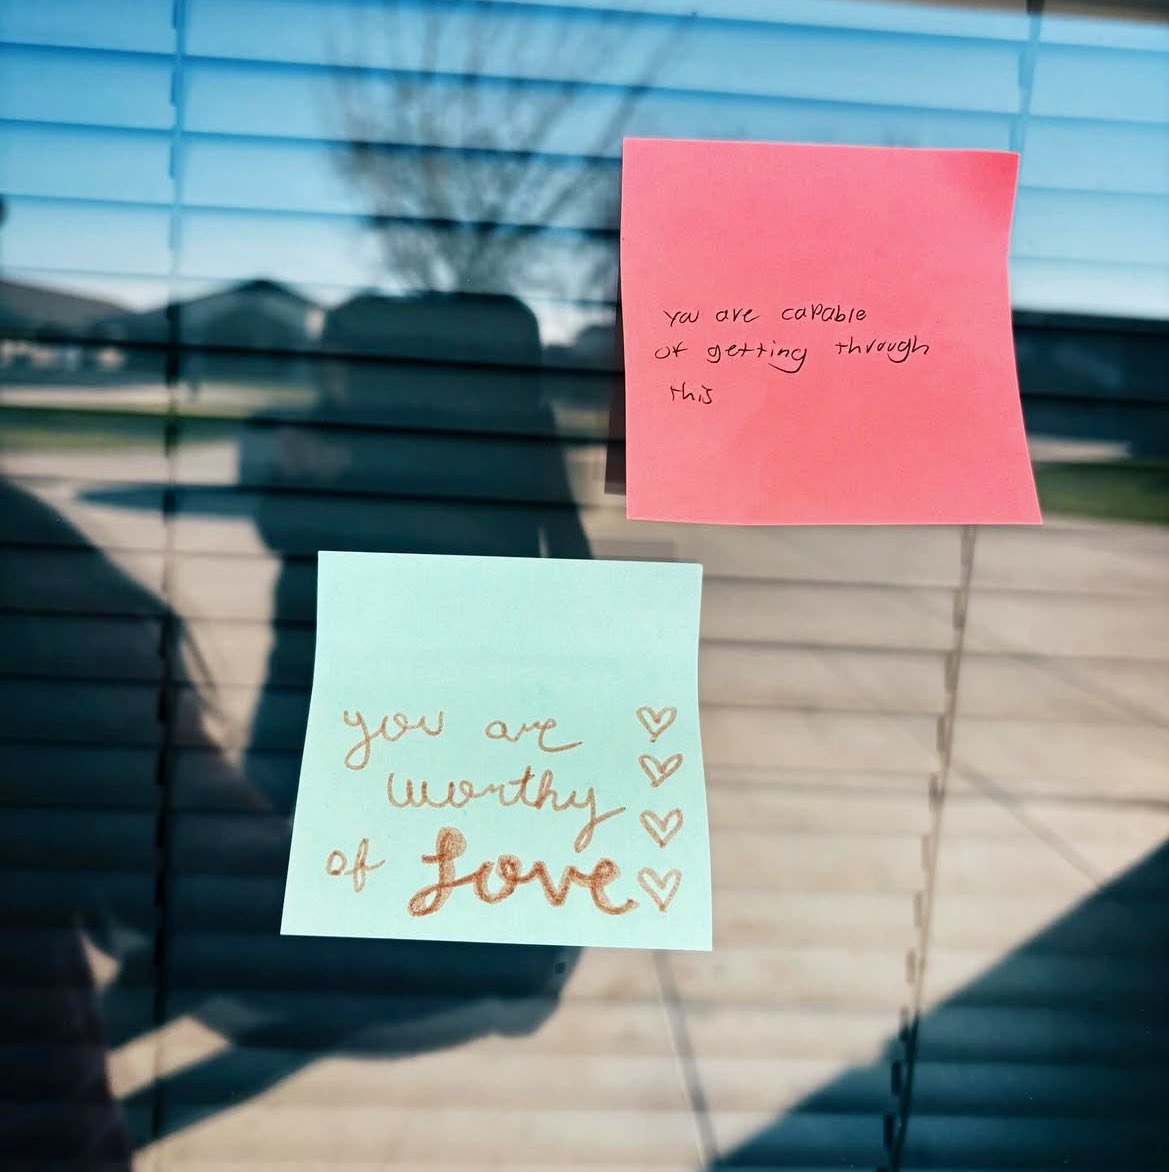 you are capable
of getting through
this
you are
worthy
of Love